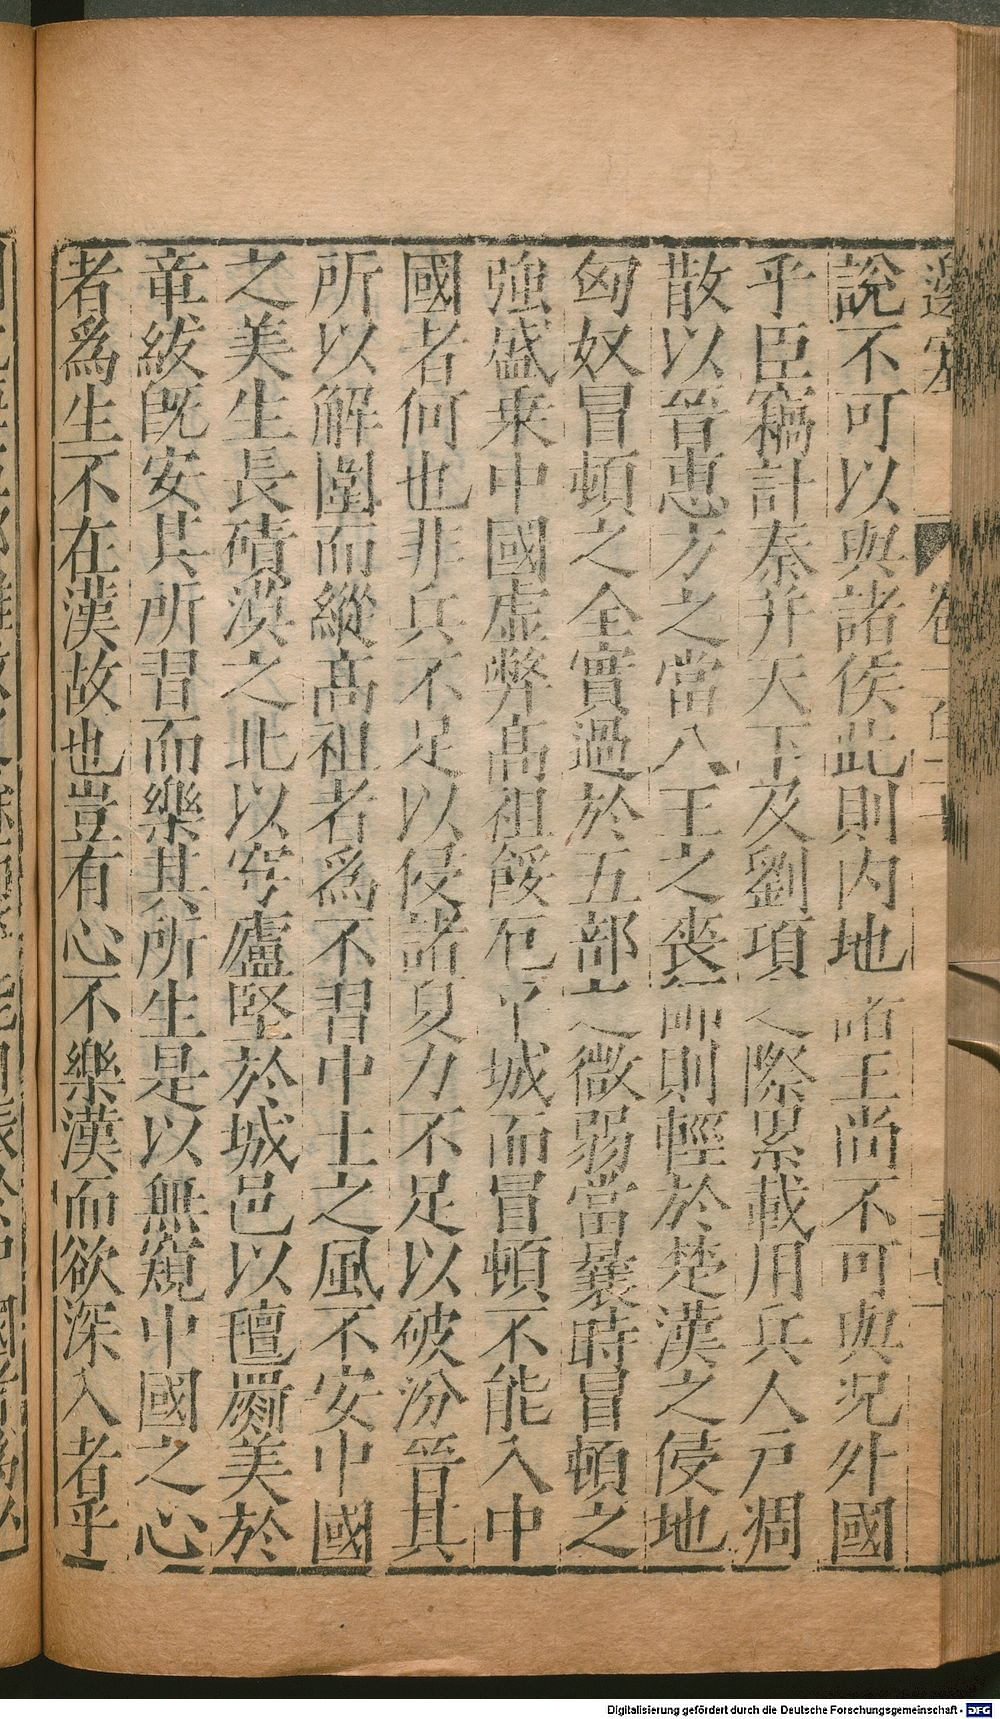 說不可以與諸侯此則内地諸王尚不可與況外國
乎臣竊計秦并天下及劉項之際累載用兵人戶凋
散以晉惠方之當八王之喪師則輕於楚漢之侵地
匈奴冒頓之全實過於五部之微弱當曩時冒頓之
強盛乗中國虛弊高祖餒厄平城而冒頓不能入中
國者何也非兵不足以侵諸夏力不足以破汾晉其
所以解圍而縱高祖者爲不習中土之風不安中國
之美生長磧漠之北以穹廬堅於城邑以氊罽美於
章紱旣安其所習而樂其所生是以無窺中國之心
者爲生不在漢故也豈有心不樂漢而欲深入者乎
Digitalisierung gefördert durch die Deutsche Forschungsgemeinschaft - DFG